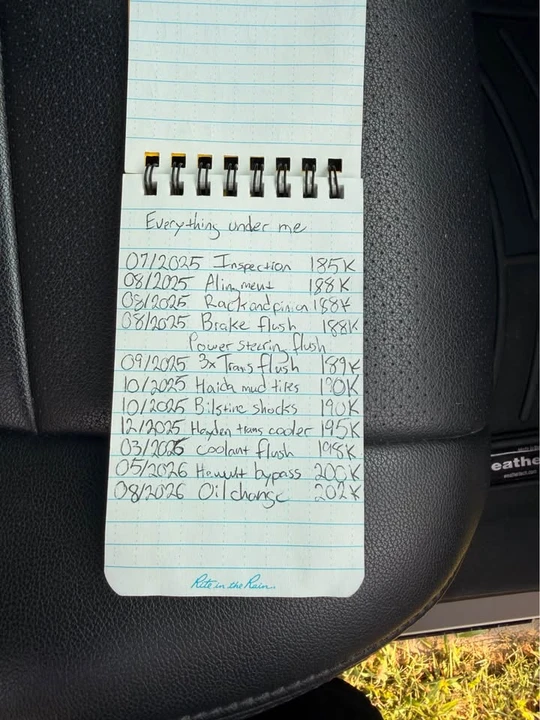 Everything under me
07/2025 Inspection 185K
08/2025 Alinment 188K
08/2025 Rack and pinion 188K
08/2025 Brake flush 188K
Power steerin flush
09/2025 3x Trans flush 189K
10/2025 Haida mud tires 190K
10/2025 Bilstine shocks 190K
12/2025 Hayden trans cooler 195K
03/2026 coolant flush 198K
05/2026 bypass 200K
08/2026 Oil change 202K
Rite in the Rain
eathe